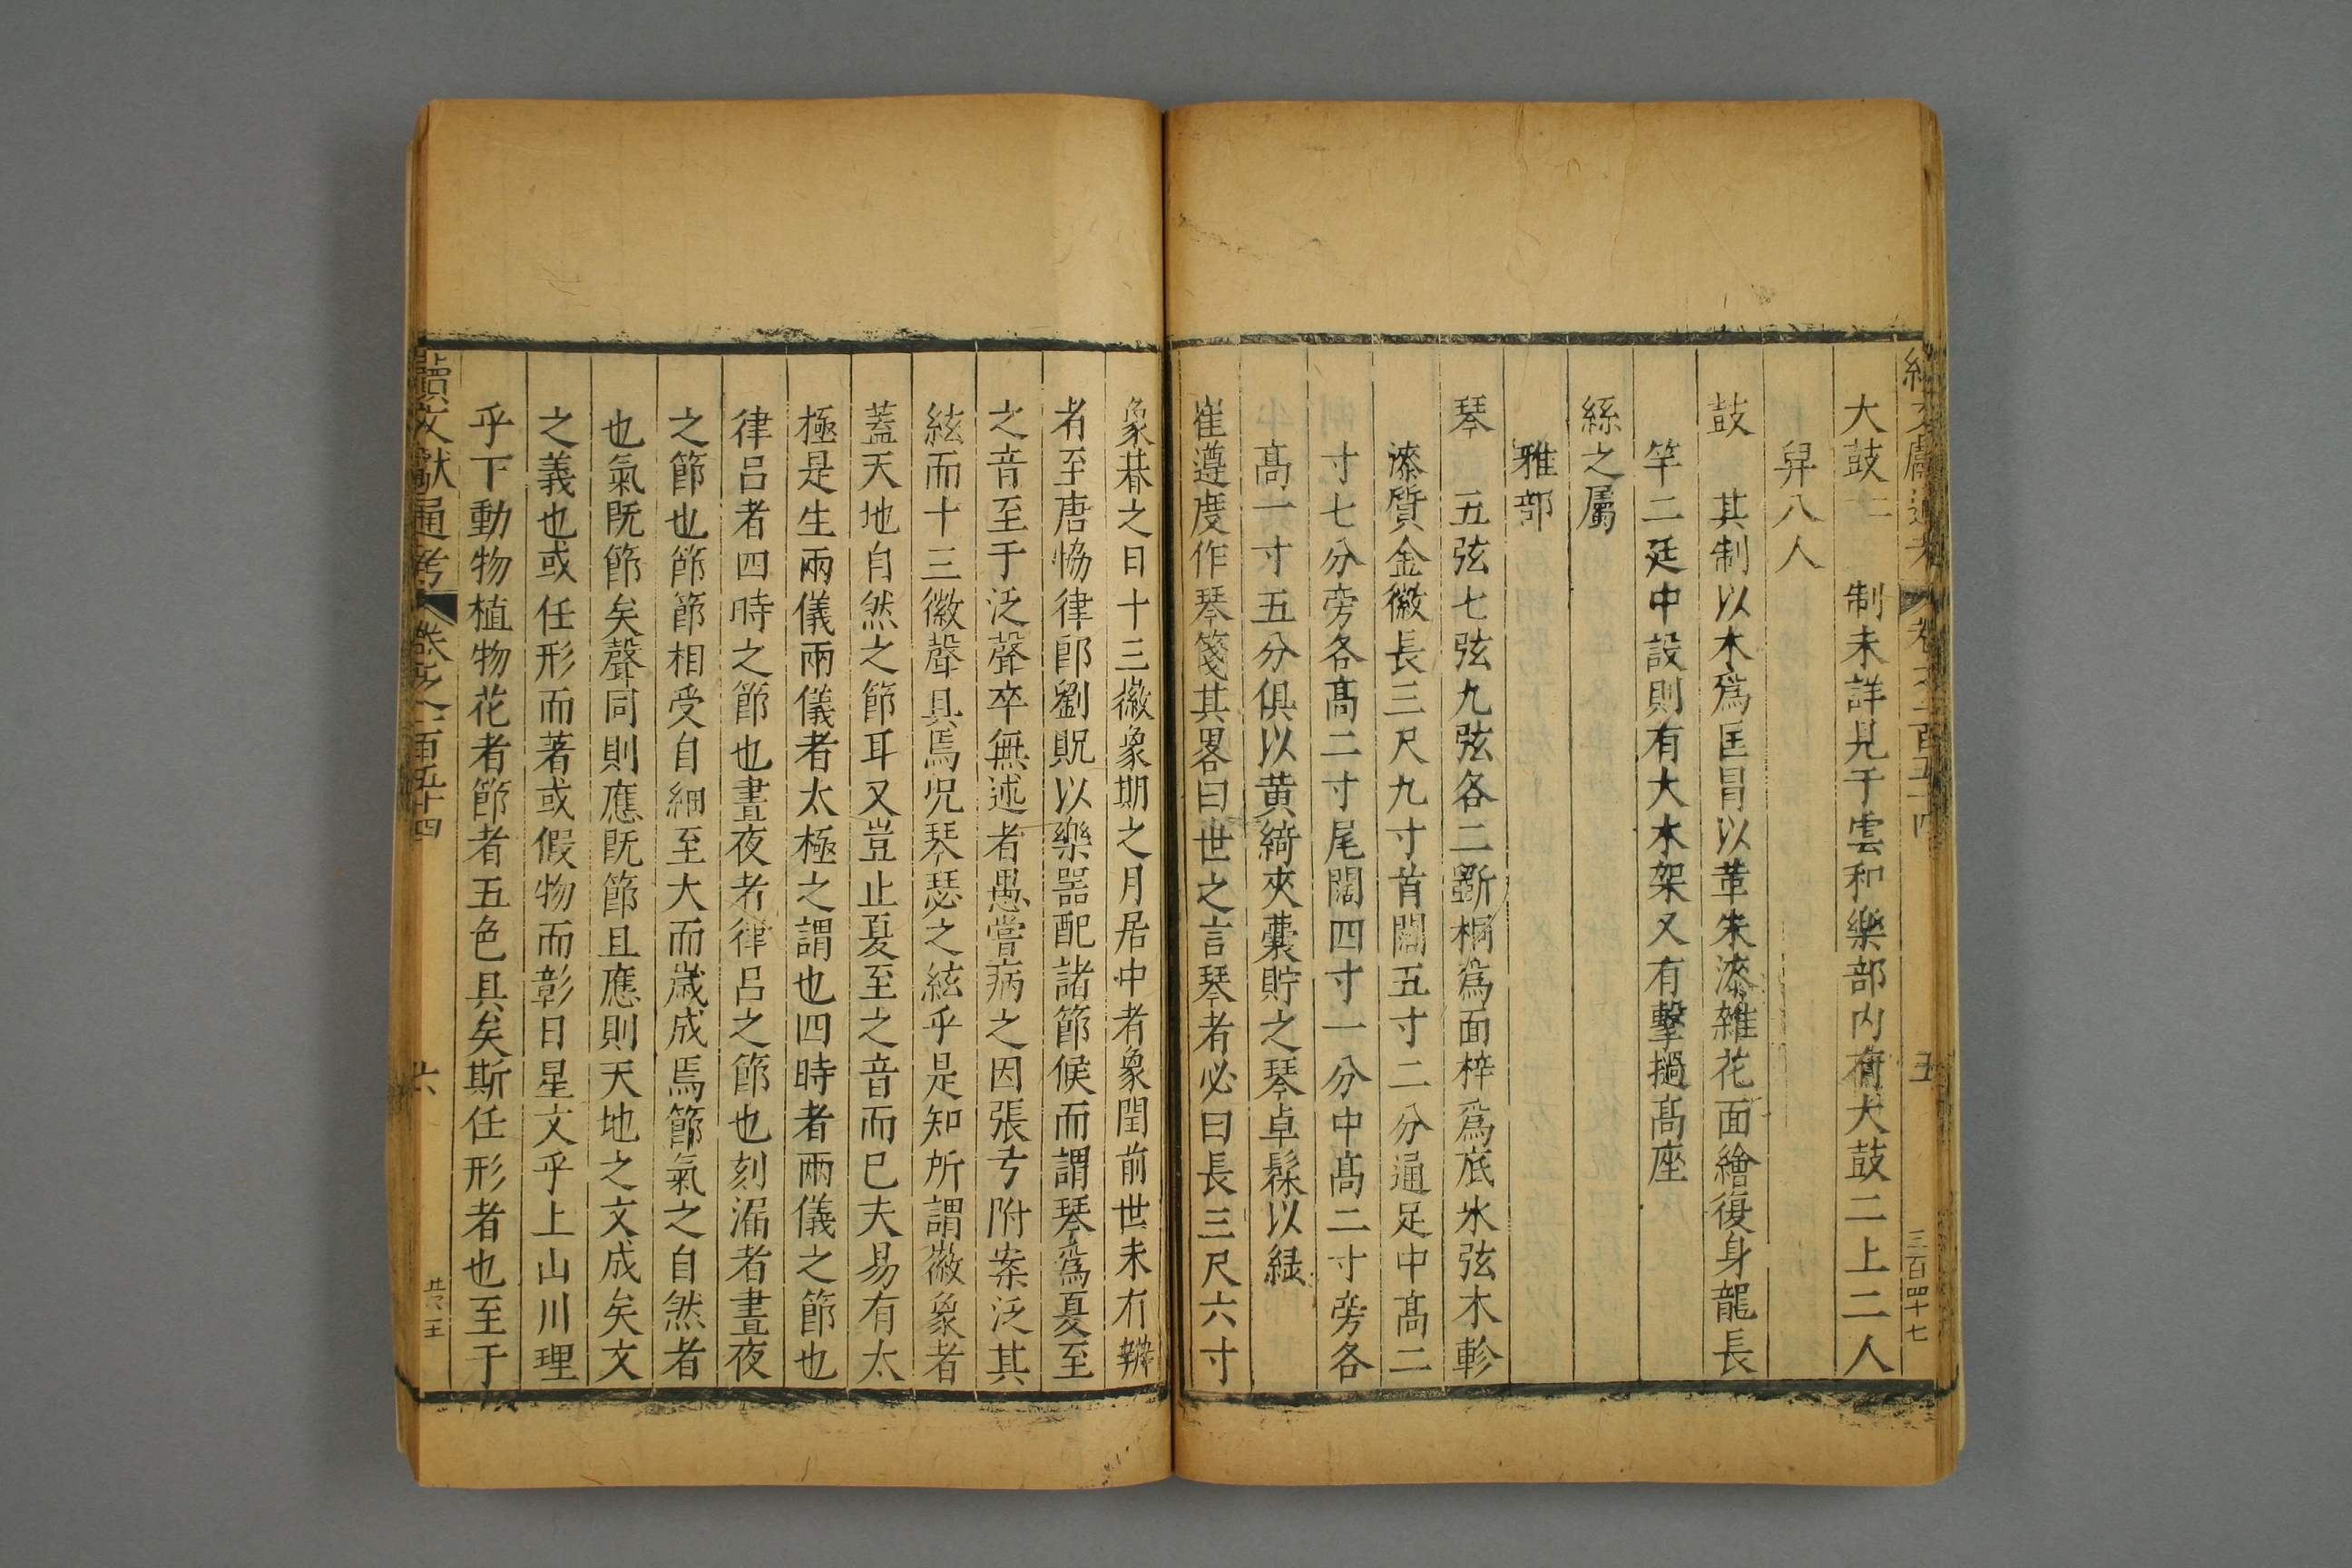 續文獻通考 卷之一百五十四 五 三百四十七
大鼓二 制未詳見于雲和樂部内府大鼓二上二人
舁八人
鼓 其制以木爲匡冒以革朱漆雜花面繪復身龍長
竿二廷中設則有大木架又有擊撾高座
絲之屬
雅部
琴 五弦七弦九弦各二斵桐爲面梓爲底氷弦木軫
漆質金徽長三尺九寸首闊五寸二分通足中髙二
寸七分旁各髙二寸尾闊四寸一分中髙二寸旁各
髙一寸五分俱以黄綺夾囊貯之琴卓髹以緑
崔遵度作琴箋其畧曰世之言琴者必曰長三尺六寸
象朞之日十三徽象期之月居中者象閏前世未有辯
者至唐恊律郎劉貺以樂噐配諸節候而謂琴爲夏至
之音至于泛聲卒無述者愚嘗病之因張弓附案泛其
絃而十三徽聲具焉况琴瑟之絃乎是知所謂徽象者
蓋天地自然之節耳又豈止夏至之音而已夫易有太
極是生兩儀兩儀者太極之謂也四時者兩儀之節也
律呂者四時之節也晝夜者律呂之節也刻漏者晝夜
之節也節節相受自細至大而歲成焉節氣之自然者
也氣旣節矣聲同則應旣節且應則天地之文成矣文
之義也或任形而著或假物而彰日星文乎上山川理
乎下動物植物花者節者五色具矣斯任形者也至于
續文獻通考 卷之一百五十四 六